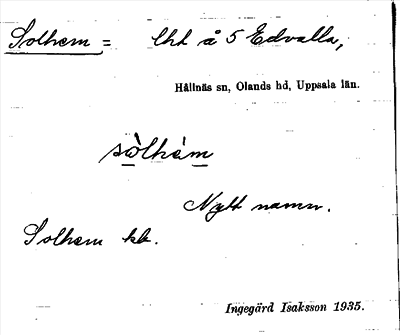 Solhem = lht å 5 Edvalla,
Hållnäs sn, Olands hd, Uppsala län.
sòlhèm
Nytt namn.
Solhem kk.
Ingegärd Isaksson 1935.